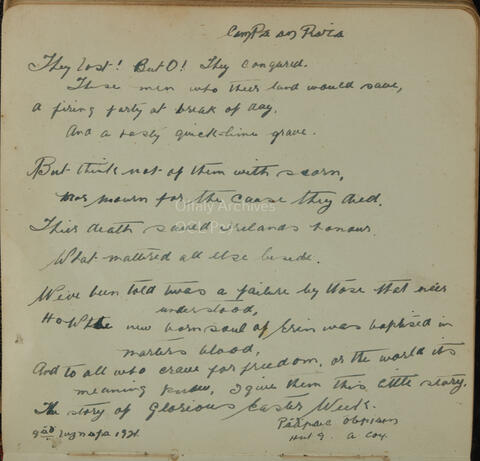 Campa an
They lost! But O! They conqured.
These men who their land would save,
A firing party at break of day.
And a hasty quick-lime grave.
But think not of them with scorn,
Nor mourn for the cause they died.
Thier death saved Irelands honour.
What mattered all else beside.
We've been told twas a failure by those that neer
understood,
How the new born soul of Erin was baptised in
marters blood,
And to all who crave for freedom, or the world its
meaning knew, I give them this little story.
The story of Glorious Easter Week.
1921.
Hut 9. A Coy.
Offaly Archives